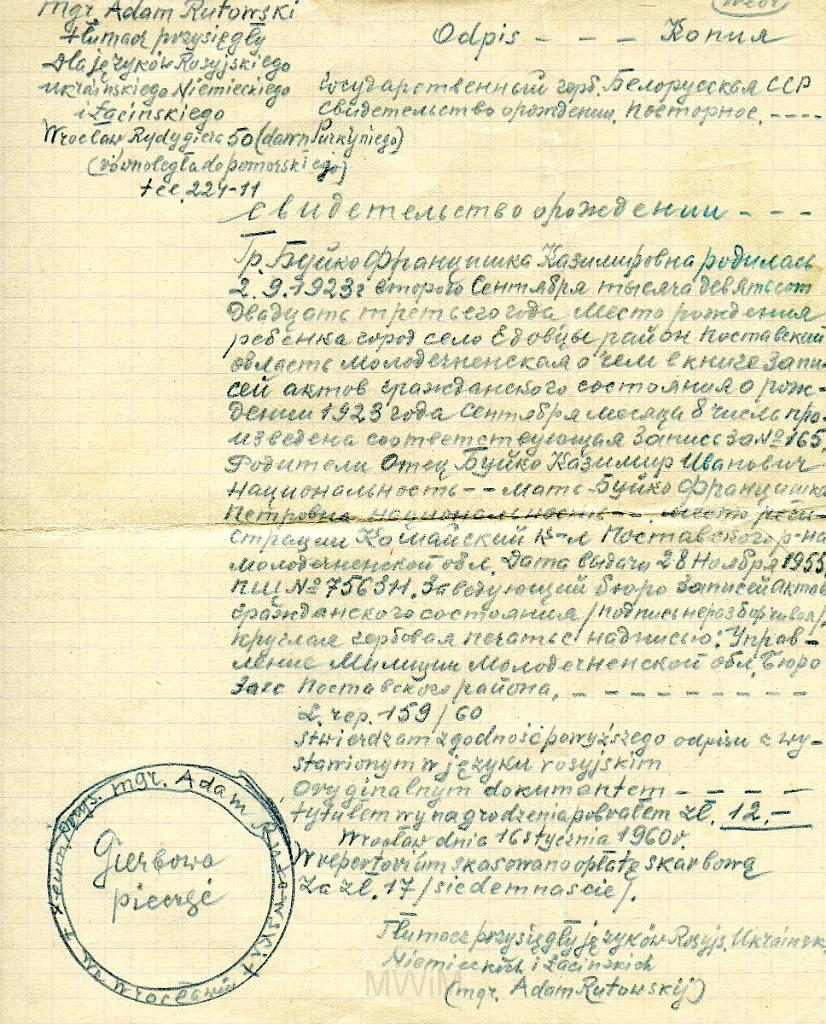 mgr Adam Rutowski
tłumacz przysięgły
dla języków Rosyjskiego
ukraińskiego Niemieckiego
i Łacińskiego
Wrocław Rydygiera 50 (dawn Purkyniego)
(równoległa do pomorskiej)
tel. 224-11
Odpis - - - Копия
Государственный герб. Белорусская ССР
Свидетельство о рождении. Повторное. ----
Свидетельство о рождении - - -
Гр. Буйко Францишка Казимировна родилась
2.9.1923г второго Сентября тысяча девятьсот
Двадцать третьего года Место рождения
ребенка город село Едовцы район Поставский
область Молодечненская о чем в книге запи-
сей актов гражданского состояния о рож-
дении 1923 года Сентября месяца 8 числа про-
изведена соответствующая запись за № 165,
Родители Отец Буйко Казимир Иванович
национальность -- мать Буйко Францишка
Петровна национальность --. Место реги-
страции Комайский с-т Поставского р-на
Молодечненской обл. Дата выдачи 28 Ноября 1955
№ 756311. Заведующий бюро записей актов
гражданского состояния /подпись неразборчивая/
круглая гербовая печать с надписью: Управ-
ление Милиции Молодечненской обл. Бюро
Загс Поставского района. - - - - - - - - -
L. rep. 159/60
Stwierdzam zgodność powyższego odpisu z wy-
stawionym w języku rosyjskim
Oryginalnym dokumentem - - - - -
tytułem wynagrodzenia pobrałem zł. 12.-
Wrocław dnia 16 stycznia 1960 r.
W repertorium skasowano opłatę skarbową
za zł. 17 /siedemnaście/.
Tłumacz przysięgły języków Rosyjs. Ukraińsk
Niemieckich i Łacińskich
(mgr. Adam Rutowskij)
Tłum. Przys. mgr. Adam Rutowski + we Wrocławiu
Gierbowa
pieczęć
MWiM